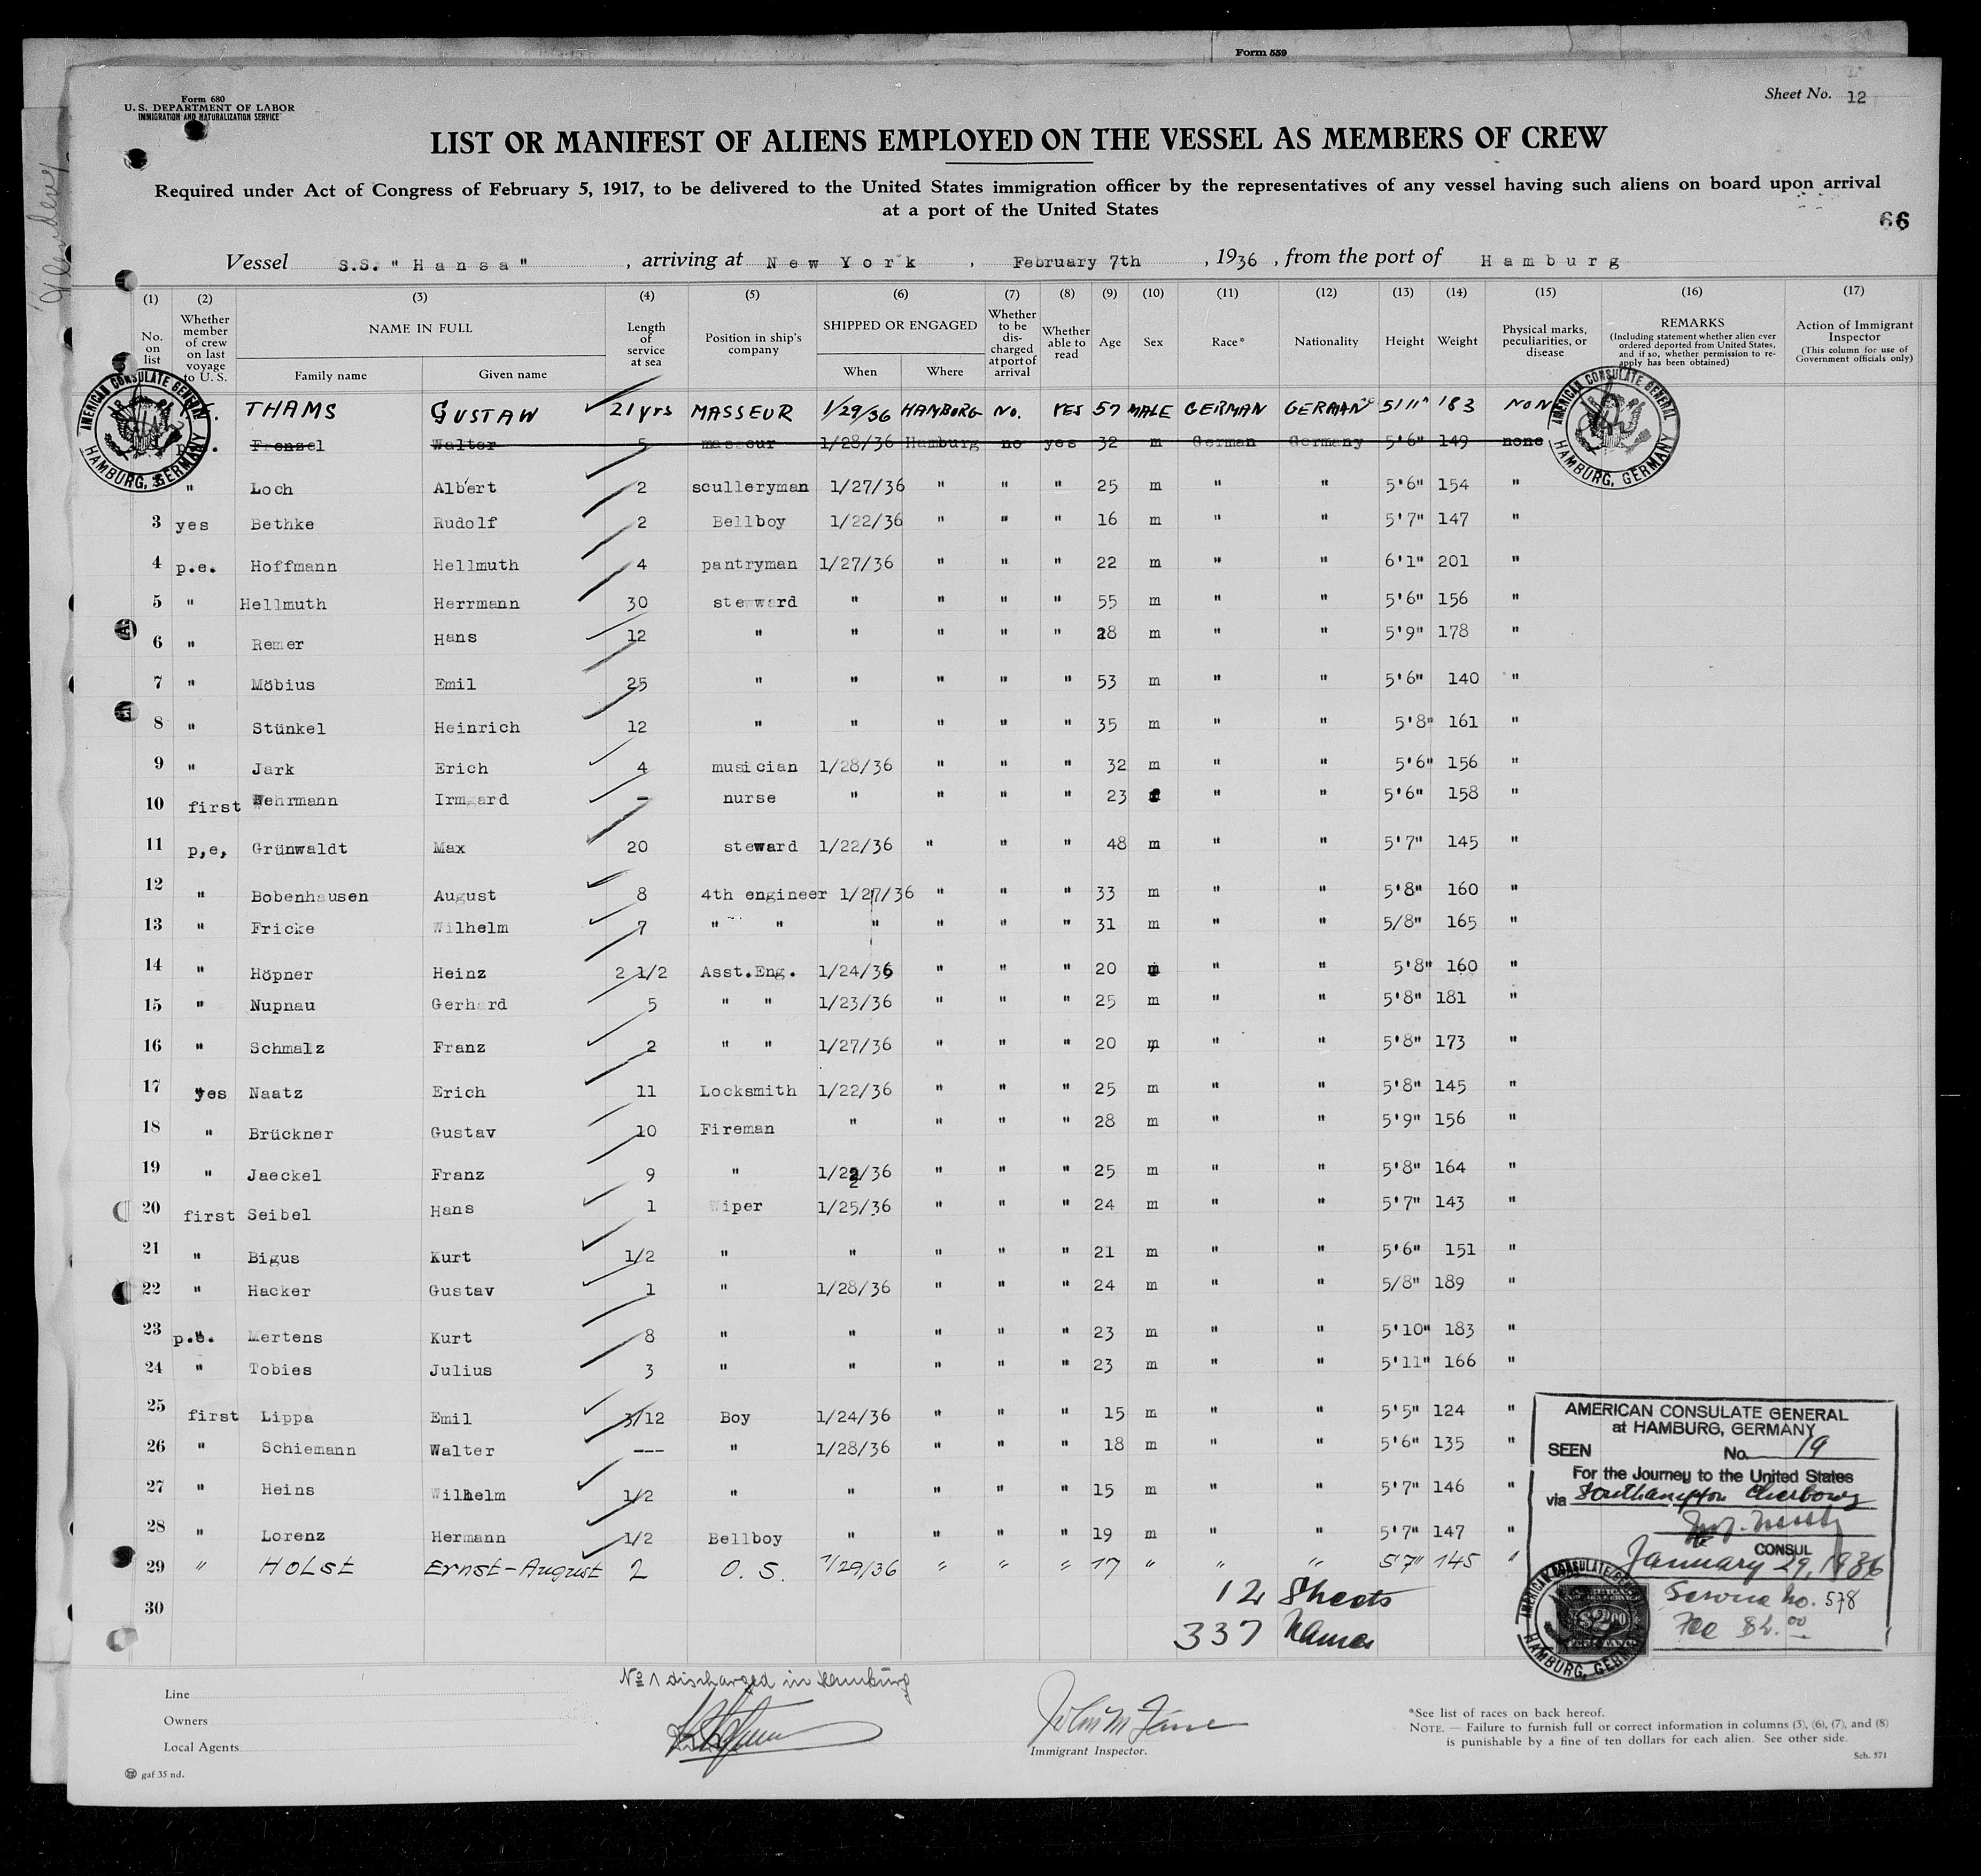 Form 559
Form 680
U. S. DEPARTMENT OF LABOR
IMMIGRATION AND NATURALIZATION SERVICE
Sheet No. 12
LIST OR MANIFEST OF ALIENS EMPLOYED ON THE VESSEL AS MEMBERS OF CREW
Required under Act of Congress of February 5, 1917, to be delivered to the United States immigration officer by the representatives of any vessel having such aliens on board upon arrival
at a port of the United States
66
Vessel S.S. "Hansa" , arriving at New York , February 7th , 1936 , from the port of Hamburg
(1) (2) (3) (4) (5) (6) (7) (8) (9) (10) (11) (12) (13) (14) (15) (16) (17)
No. on list
Whether member of crew on last voyage to U. S.
NAME IN FULL
Family name
Given name
Length of service at sea
Position in ship's company
SHIPPED OR ENGAGED
When
Where
Whether to be discharged at port of arrival
Whether able to read
Age
Sex
Race*
Nationality
Height
Weight
Physical marks, peculiarities, or disease
REMARKS
(Including statement whether alien ever ordered deported from United States, and if so, whether permission to reapply has been obtained)
Action of Immigrant Inspector
(This column for use of Government officials only)
THAMS GUSTAW 21 yrs MASSEUR 1/29/36 HAMBURG NO. YES 57 MALE GERMAN GERMAN 5'11" 183 NON
Frenzel Walter 5 masseur 1/28/36 Hamburg no yes 32 m German Germany 5'6" 149 none
" Loch Albert 2 sculleryman 1/27/36 " " " 25 m " " 5'6" 154 "
3 yes Bethke Rudolf 2 Bellboy 1/22/36 " " " 16 m " " 5'7" 147 "
4 p.e. Hoffmann Hellmuth 4 pantryman 1/27/36 " " " 22 m " " 6'1" 201 "
5 " Hellmuth Herrmann 30 steward " " " " 55 m " " 5'6" 156 "
6 " Remer Hans 12 " " " " " 28 m " " 5'9" 178 "
7 " Möbius Emil 25 " " " " " 53 m " " 5'6" 140 "
8 " Stünkel Heinrich 12 " " " " " 35 m " " 5'8" 161 "
9 " Jark Erich 4 musician 1/28/36 " " " 32 m " " 5'6" 156 "
10 first Wehrmann Irmgard - nurse " " " " 23 f " " 5'6" 158 "
11 p,e, Grünwaldt Max 20 steward 1/22/36 " " " 48 m " " 5'7" 145 "
12 " Bobenhausen August 8 4th engineer 1/27/36 " " " 33 m " " 5'8" 160 "
13 " Fricke Wilhelm 7 " " " " " " 31 m " " 5/8" 165 "
14 " Höpner Heinz 2 1/2 Asst.Eng. 1/24/36 " " " 20 m " " 5'8" 160 "
15 " Nupnau Gerhard 5 " " 1/23/36 " " " 25 m " " 5'8" 181 "
16 " Schmalz Franz 2 " " 1/27/36 " " " 20 m " " 5'8" 173 "
17 yes Naatz Erich 11 Locksmith 1/22/36 " " " 25 m " " 5'8" 145 "
18 " Brückner Gustav 10 Fireman " " " " 28 m " " 5'9" 156 "
19 " Jaeckel Franz 9 " 1/22/36 " " " 25 m " " 5'8" 164 "
20 first Seibel Hans 1 Wiper 1/25/36 " " " 24 m " " 5'7" 143 "
21 " Bigus Kurt 1/2 " " " " " 21 m " " 5'6" 151 "
22 " Hacker Gustav 1 " 1/28/36 " " " 24 m " " 5/8" 189 "
23 p.e. Mertens Kurt 8 " " " " " 23 m " " 5'10" 183 "
24 " Tobies Julius 3 " " " " " 23 m " " 5'11" 166 "
25 first Lippa Emil 3/12 Boy 1/24/36 " " " 15 m " " 5'5" 124 "
26 " Schiemann Walter --- " 1/28/36 " " " 18 m " " 5'6" 135 "
27 " Heins Wilhelm 1/2 " " " " " 15 m " " 5'7" 146 "
28 " Lorenz Hermann 1/2 Bellboy " " " " 19 m " " 5'7" 147 "
29 " HOLST Ernst-August 2 O. S. 1/29/36 " " " 17 " " " 5'7" 145 "
30
12 Sheets
337 Names
AMERICAN CONSULATE GENERAL
HAMBURG, GERMANY
AMERICAN CONSULATE GENERAL
HAMBURG, GERMANY
AMERICAN CONSULATE GENERAL
at HAMBURG, GERMANY
SEEN No. 19
For the Journey to the United States
via Southampton Cherbourg
CONSUL
January 29, 1936
Service No. 578
Fee $2.00
AMERICAN CONSULATE GENERAL
HAMBURG, GERMANY
No 1 discharged in Hamburg
Line
Owners
Local Agents
gaf 35 nd.
Immigrant Inspector.
*See list of races on back hereof.
NOTE. — Failure to furnish full or correct information in columns (3), (6), (7), and (8)
is punishable by a fine of ten dollars for each alien. See other side.
Sch. 571